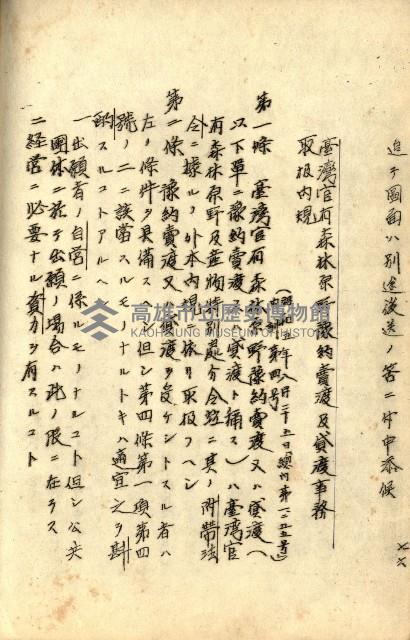 追テ図面ハ別途送ノ筈ニ付申添候
臺灣官有森林原野豫約賣渡及貸渡事務
取扱内規
昭和五年八月二十五日
第一條 臺灣官有森林原野豫約賣渡又ハ貸渡(
以下單ニ豫約賣渡又ハ貸渡ト稱ス)ハ臺灣官
有森林原野及産物特別處分令竝ニ其ノ附帶法
令ニ據ルノ外本内規ニ依リ取扱フヘシ
第二條 豫約賣渡又ハ貸渡ヲ受ケントスル者ハ
左ノ條件ヲ具備スヘシ但シ第四條第一項第四
號ノ二ニ該當スルモノナルトキハ適宜之ヲ斟
酌スルコトアルヘシ
一 出願者ノ自営ニ係ルモノナルコト但シ公共
團体ニ於テ出願ノ場合ハ此ノ限ニ在ラス
二 経営ニ必要ナル資力ヲ有スルコト
高雄市立歷史博物館
KAOHSIUNG MUSEUM OF HISTORY